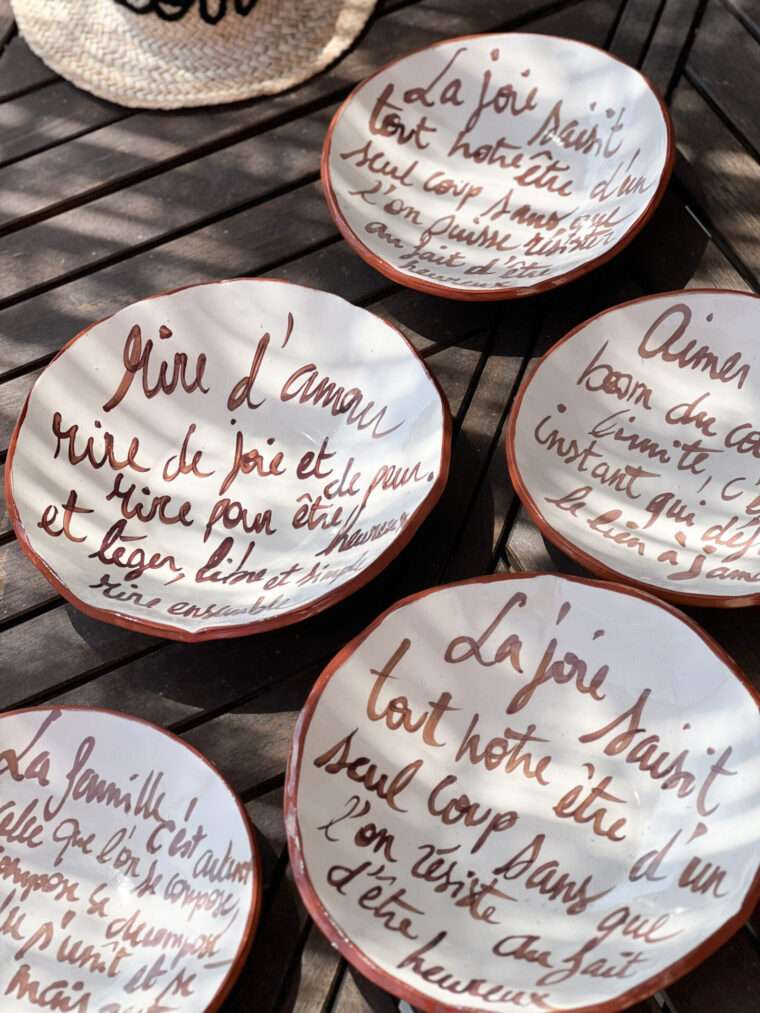 La joie saisit
tout notre être d'un
seul coup sans que
l'on puisse résister
au fait d'être
heureux
Rire d'amour
rire de joie et de peur.
rire pour être heureux
et léger, libre et simple
rire ensemble
Aimer
bam du
limite, c'e
instant qui déf
le lien à jama
La joie saisit
tout notre être d'un
seul coup sans que
l'on résiste au fait
d'être heureux
La famille, c'est autant
celle que l'on se compose,
se décompose
s'unit et se
mais